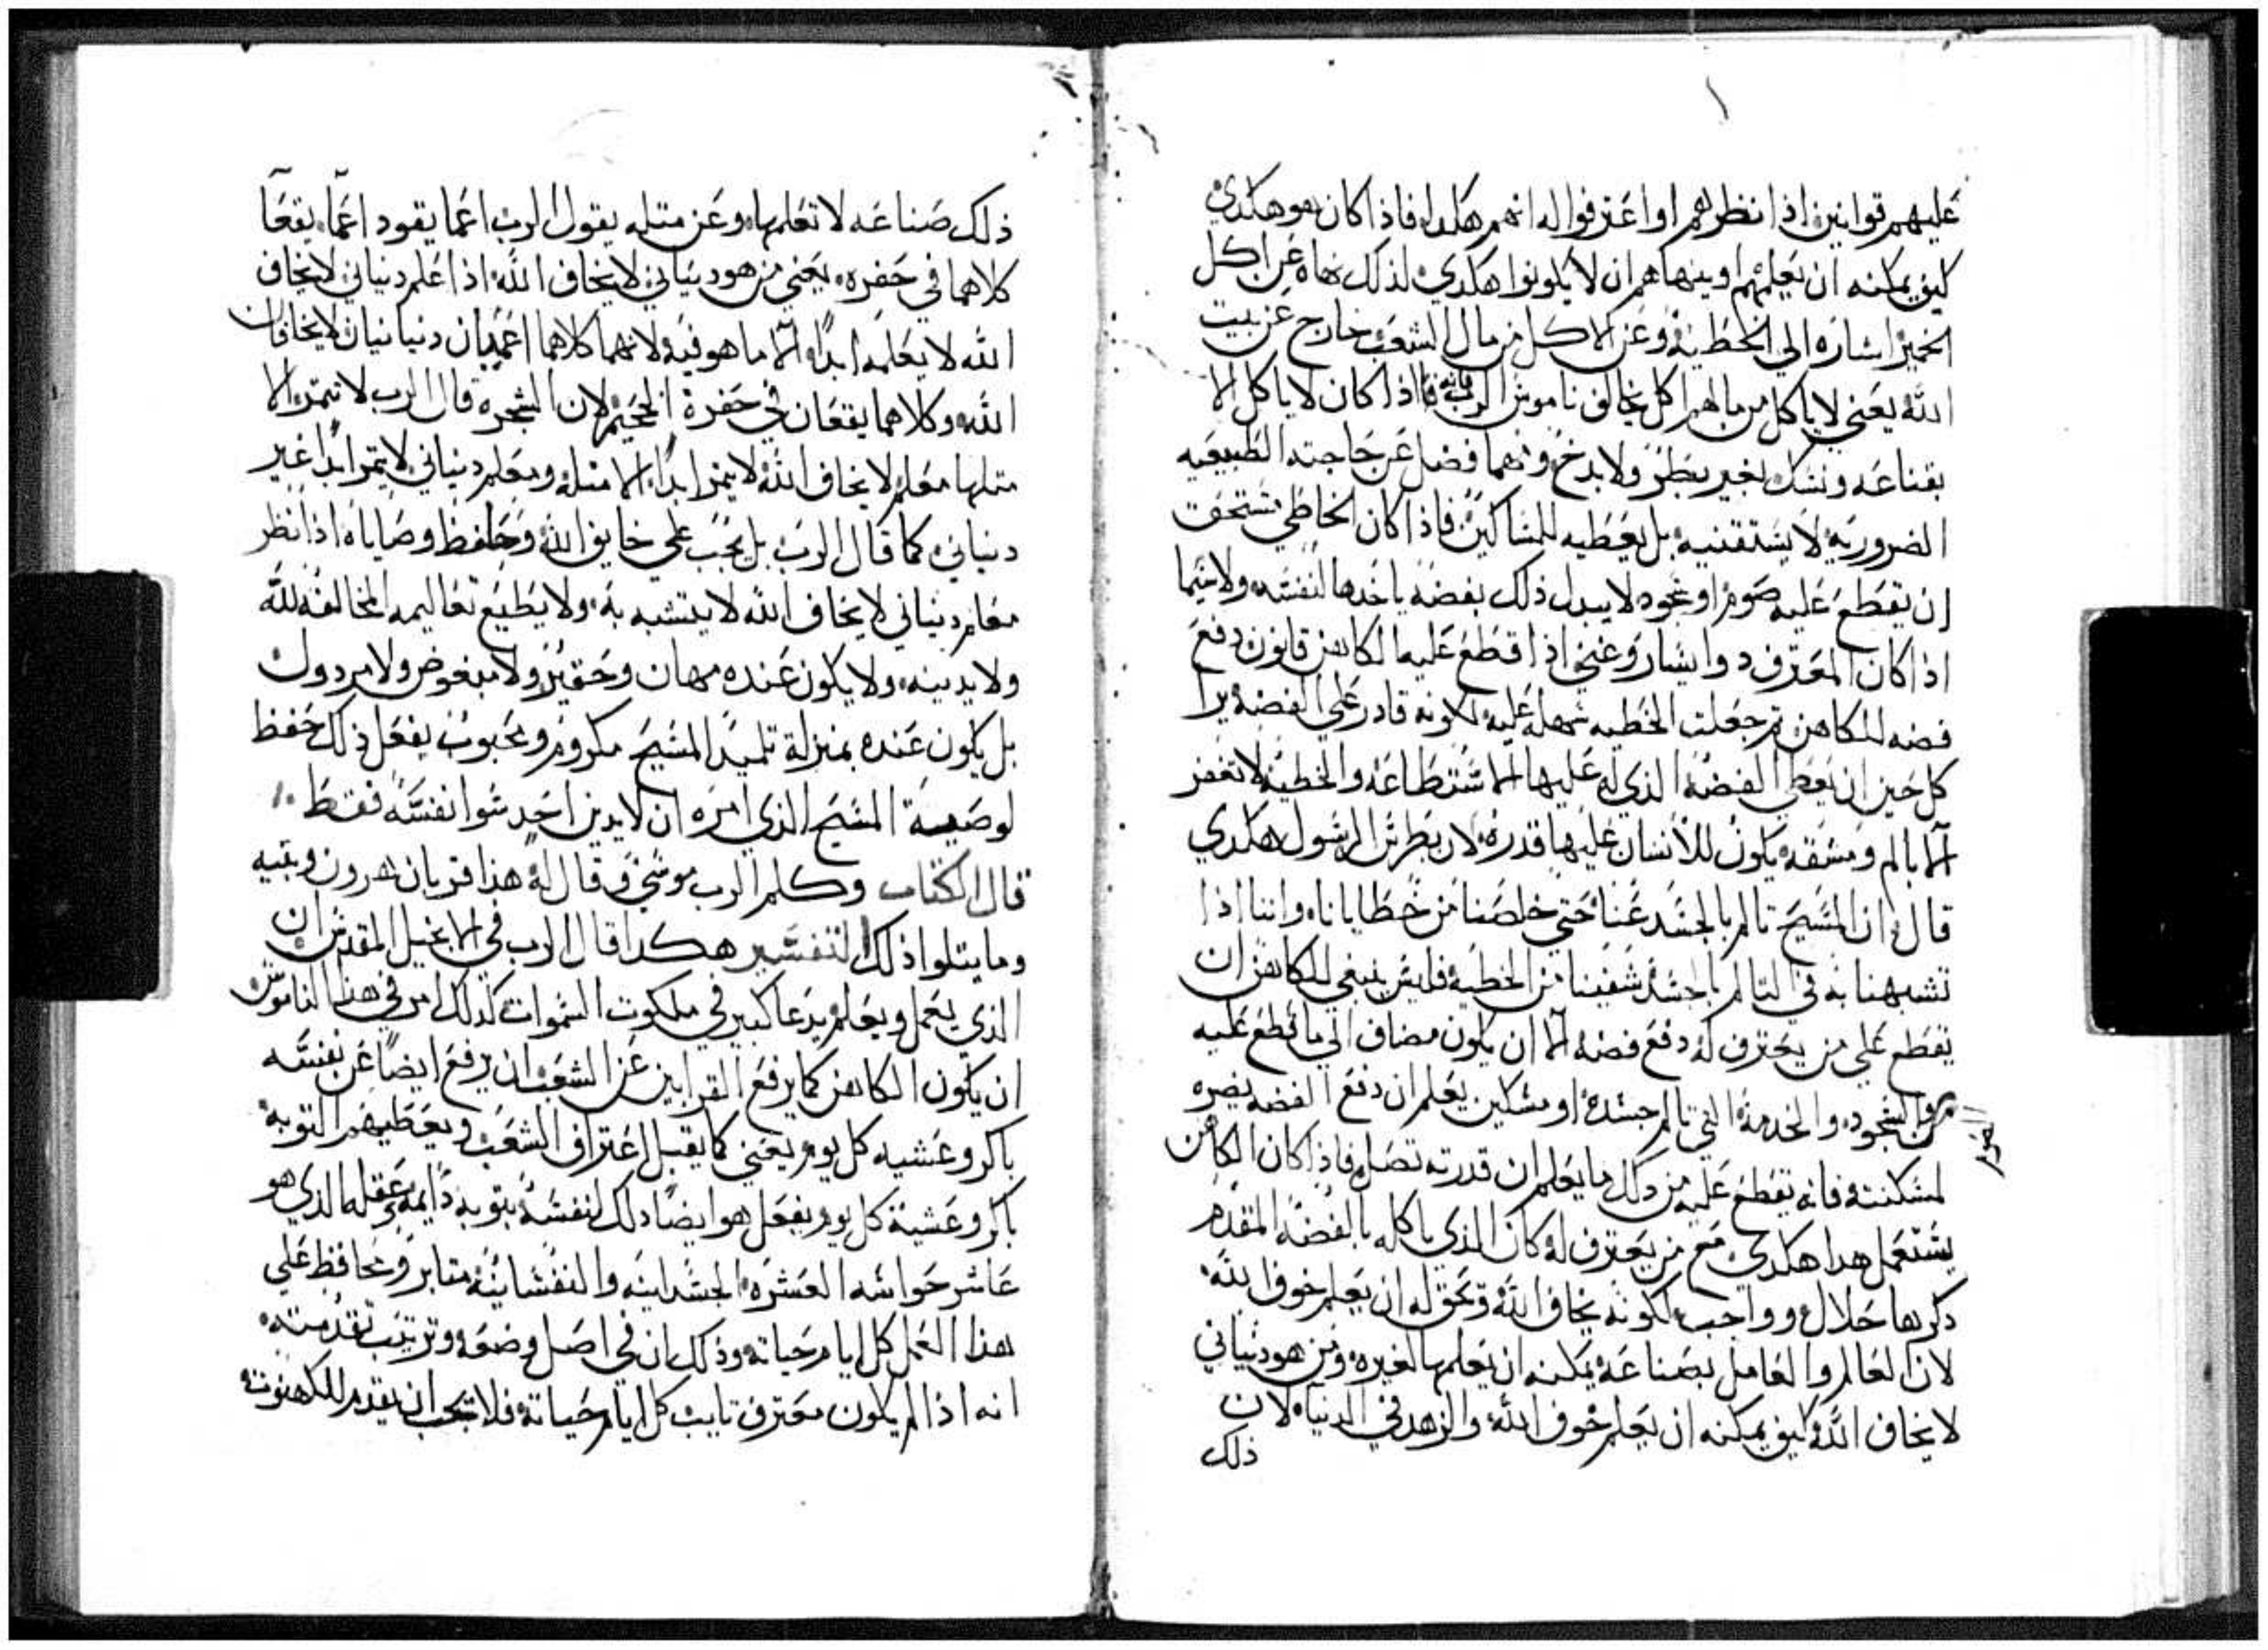 عليهم قوانين اذا نظرهم او اعترفوا له انهم هكدا فاذا كان هو هكدي
كيف يمكنه ان يعلمهم او ينهاهم ان لا يكونوا هكدي لذلك نهاه عن اكل
الخمير اشاره الي الخطيه وعن الاكل من مال الشعب خارج عن بيت
الله يعني لا ياكل من مالهم اكل يخالف ناموس الرب فانه اذا كان لا ياكل الا
بقناعه ونسك بغير بطر ولا بدخ ومهما فضل عن حاجته الطبيعيه
الضروريه لا يستقنيه بل يعطيه للمساكين فاذا كان الخاطي مستحق
ان يقطع عليه صوم او سجود لا يبدل ذلك بفضه ياخدها لنفسه ولاسيما
اذا كان المعترف دو ايسار وغني اذا قطع عليه الكاهن قانون دفع
فضه للكاهن تم جعلت الخطيه سهله عليه لكونه قادر علي الفضه يرا
كل حين ان يعطي الفضه الذي له عليها الاستطاعه والخطيه لا تغفر
الا بالم ومشقه يكون للانسان عليها قدره لان بطرس الرسول هكدي
قال ان المسيح تالم بالجسد عنا حتي خلصنا من خطايانا واننا اذا
تشبهنا به في التالم بالجسد شفينا من الخطيه فليس ينبغي للكاهن ان
يقطع علي من يعترف له دفع فضه الا ان يكون مضاف الي ما قطع عليه
الصوم
من السجود والخدمة التي تالم جسده او مسكين يعلم ان دفع الفضه يضره
لمسكنته فانه يقطع عليه من دلك ما يعلم ان قدرته تصل فاذا كان الكاهن
يستعمل هدا هكدي مع من يعترف له كان الذي ياكله بالفضه المقدم
دكرها حلال وواجب لكونه يخاف الله وتحق له ان يعلم خوف الله
لان العالم والعامل بصناعه يمكنه ان يعلمها لغيره ومن هو دنياني
لا يخاف الله كيف يمكنه ان يعلم خوف الله والزهد في الدنيا لان
ذلك
ذلك صناعه لا تعلمها وعن متله يقول الرب اعما يقود اعما يقعا
كلاهما في حفره يعني من هو دنياني لا يخاف الله اذا علم دنياني لا يخاف
الله لا يعلمه ابدا الا ما هو فيه لانهما كلاهما اعميان دنيانيان لا يخافان
الله وكلاهما يقعان في حفرة الجحيم لان الشجره قال الرب لا تتمر الا
متلها معلم لا يخاف الله لا يتمر ابدا الا متله ومعلم دنياني لا يتمر ابدا غير
دنياني كما قال الرب بل يجب علي خايف الله وحافظ وصاياه اذا نظر
معلم دنياني لا يخاف الله لا يتشبه به ولا يطيع تعاليمه المخالفه لله
ولا يدينه ولا يكون عنده مهان وحقير ولا مبغوض ولا مردول
بل يكون عنده بمنزلة تلميد المسيح مكروم ومحبوب يفعل ذلك حفظ
لوصية المسيح الذي امره ان لا يدين احد سوا نفسه فقط
قال الكتاب وكلم الرب موسي وقال له هذا قربان هرون وبنيه
وما يتلوا ذلك التفسير هكدا قال الرب في الانجيل المقدس ان
الذي يعمل ويعلم يدعا كبير في ملكوت السموات كدلك امر في هذا الناموس
ان يكون الكاهن كما يرفع القرابين عن الشعب ان يرفع ايضا عن نفسه
باكر وعشيه كل يوم يعني كما يقبل اعتراف الشعب ويعطيهم التوبه
باكر وعشية كل يوم يفعل هو ايضا دلك لنفسه بتوبه دايمه وعقله الذي هو
عاشر حواسه العشره الجسدانيه والنفسانيه متابر ومحافظ علي
هذا العمل كل ايام حياته وذلك ان في اصل وضعه وترتيب تقدمته
انه اذا لم يكون معترف تايب كل ايام حياته فلا تجب ان يقدم للكهنوته